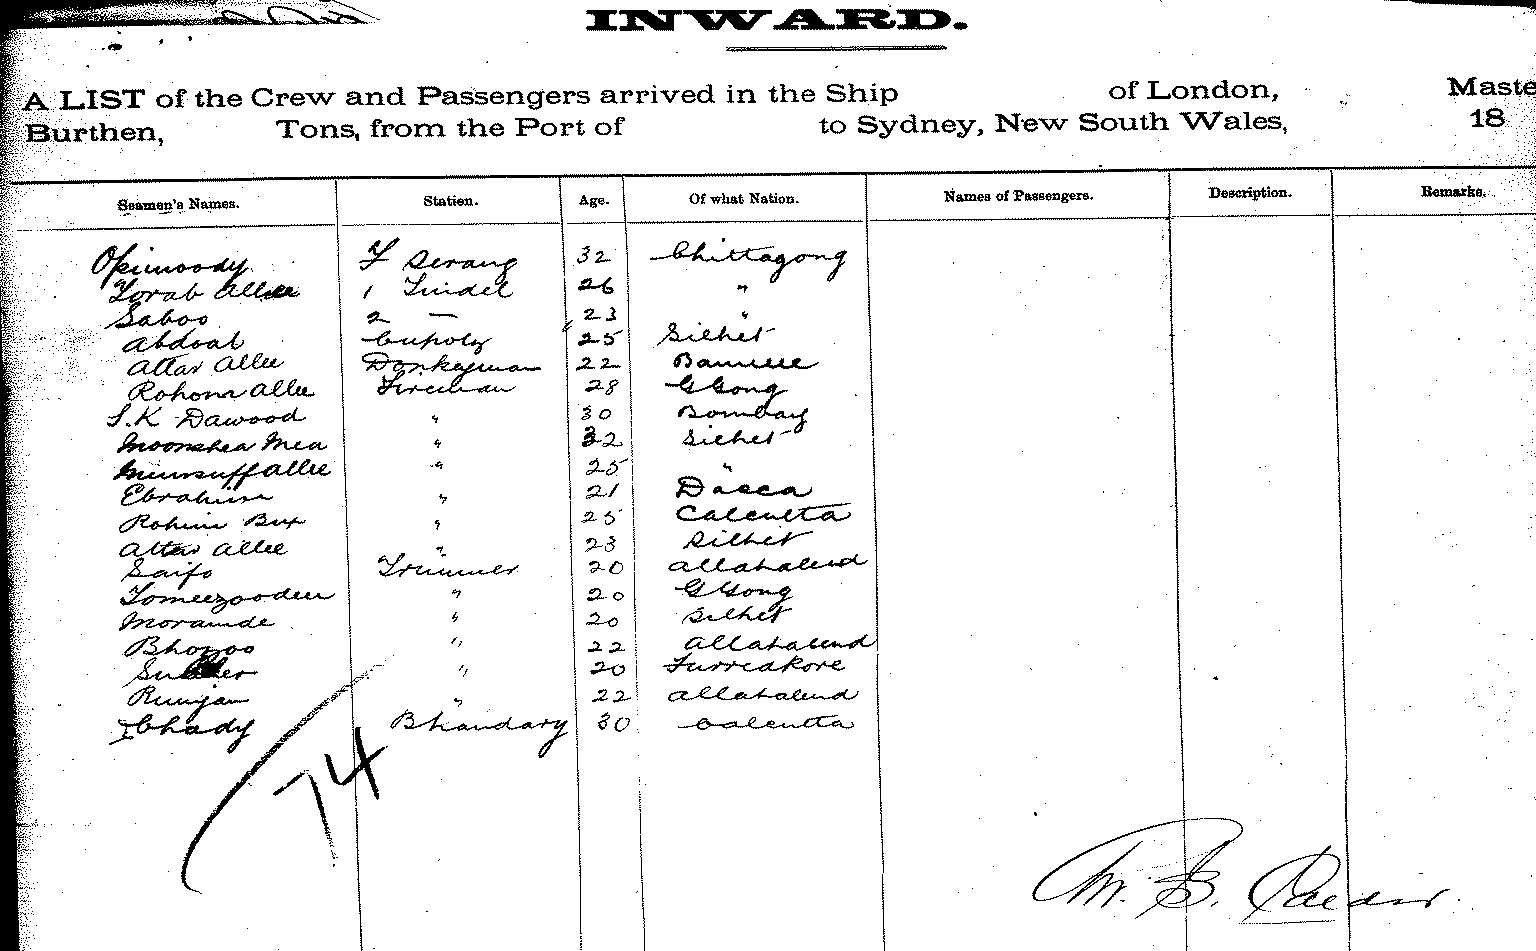 INWARD.
A LIST of the Crew and Passengers arrived in the Ship of London, Maste
Burthen, Tons, from the Port of to Sydney, New South Wales, 18
Seamen's Names. Station. Age. Of what Nation. Names of Passengers. Description. Remarks.
Opimoody F Serang 32 Chittagong
Torab Allee 1 Tindel 26 "
Saboo 2 — 23 "
Abdoal 25 Silhet
Attar Allee Donkeyman 22
Rohom Allee Fireman 28 Ggong
S.K Dawood " 30 Bombay
Moonshea Mea " 32 Silhet
Munsuff Allee " 25 "
Ebrahim " 21 Dacca
Rohim Bux " 25 Calcutta
Attar Allee " 23 Silhet
Saifo Trimmer 20 Allahabad
Tomeezooden " 20 Ggong
Moramde " 20 Silhet
Bhozoo " 22 Allahabad
" 20 Furredkore
Runjan " 22 Allahabad
Chady Bhandary 30 Calcutta
74